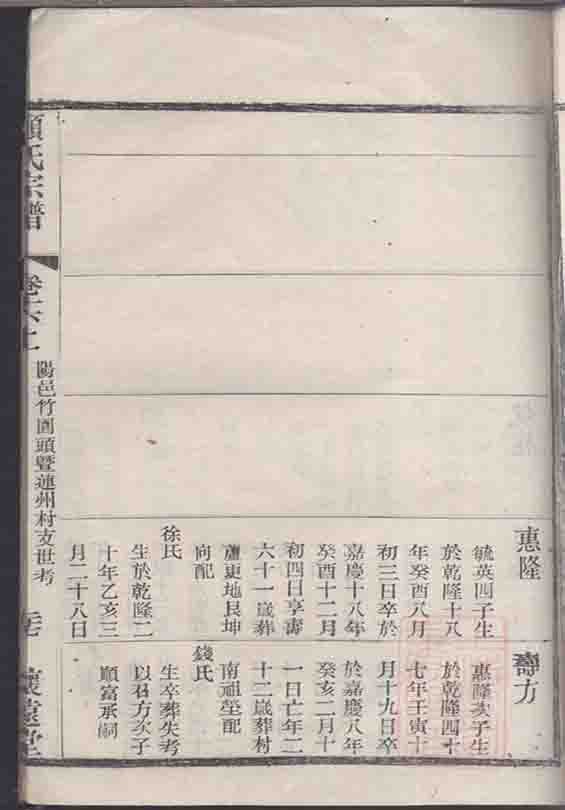 惠隆
毓英四子生
於乾隆十八
年癸酉八月
初三日卒於
嘉慶十八年
癸酉十二月
初四日享壽
六十一歲葬
蘆更地艮坤
向配
徐氏
生於乾隆二
十年乙亥三
月二十八日
壽方
惠隆次子生
於乾隆四十
七年壬寅十
月十九日卒
於嘉慶八年
癸亥二月十
一日亡年二
十二歲葬村
南祖塋配
錢氏
生卒葬失考
以召方次子
順富承嗣
氏宗譜
卷六上
陽邑竹園頭暨蓮州村支世考
懷遠堂